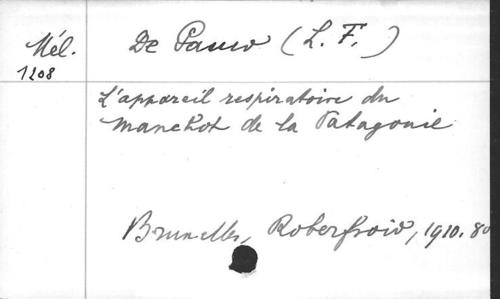 Mél. De Pauw (L. F.)
1208
L'appareil respiratoire du
manchot de la Patagonie
Bruxelles, Roberfroid, 1910. 80